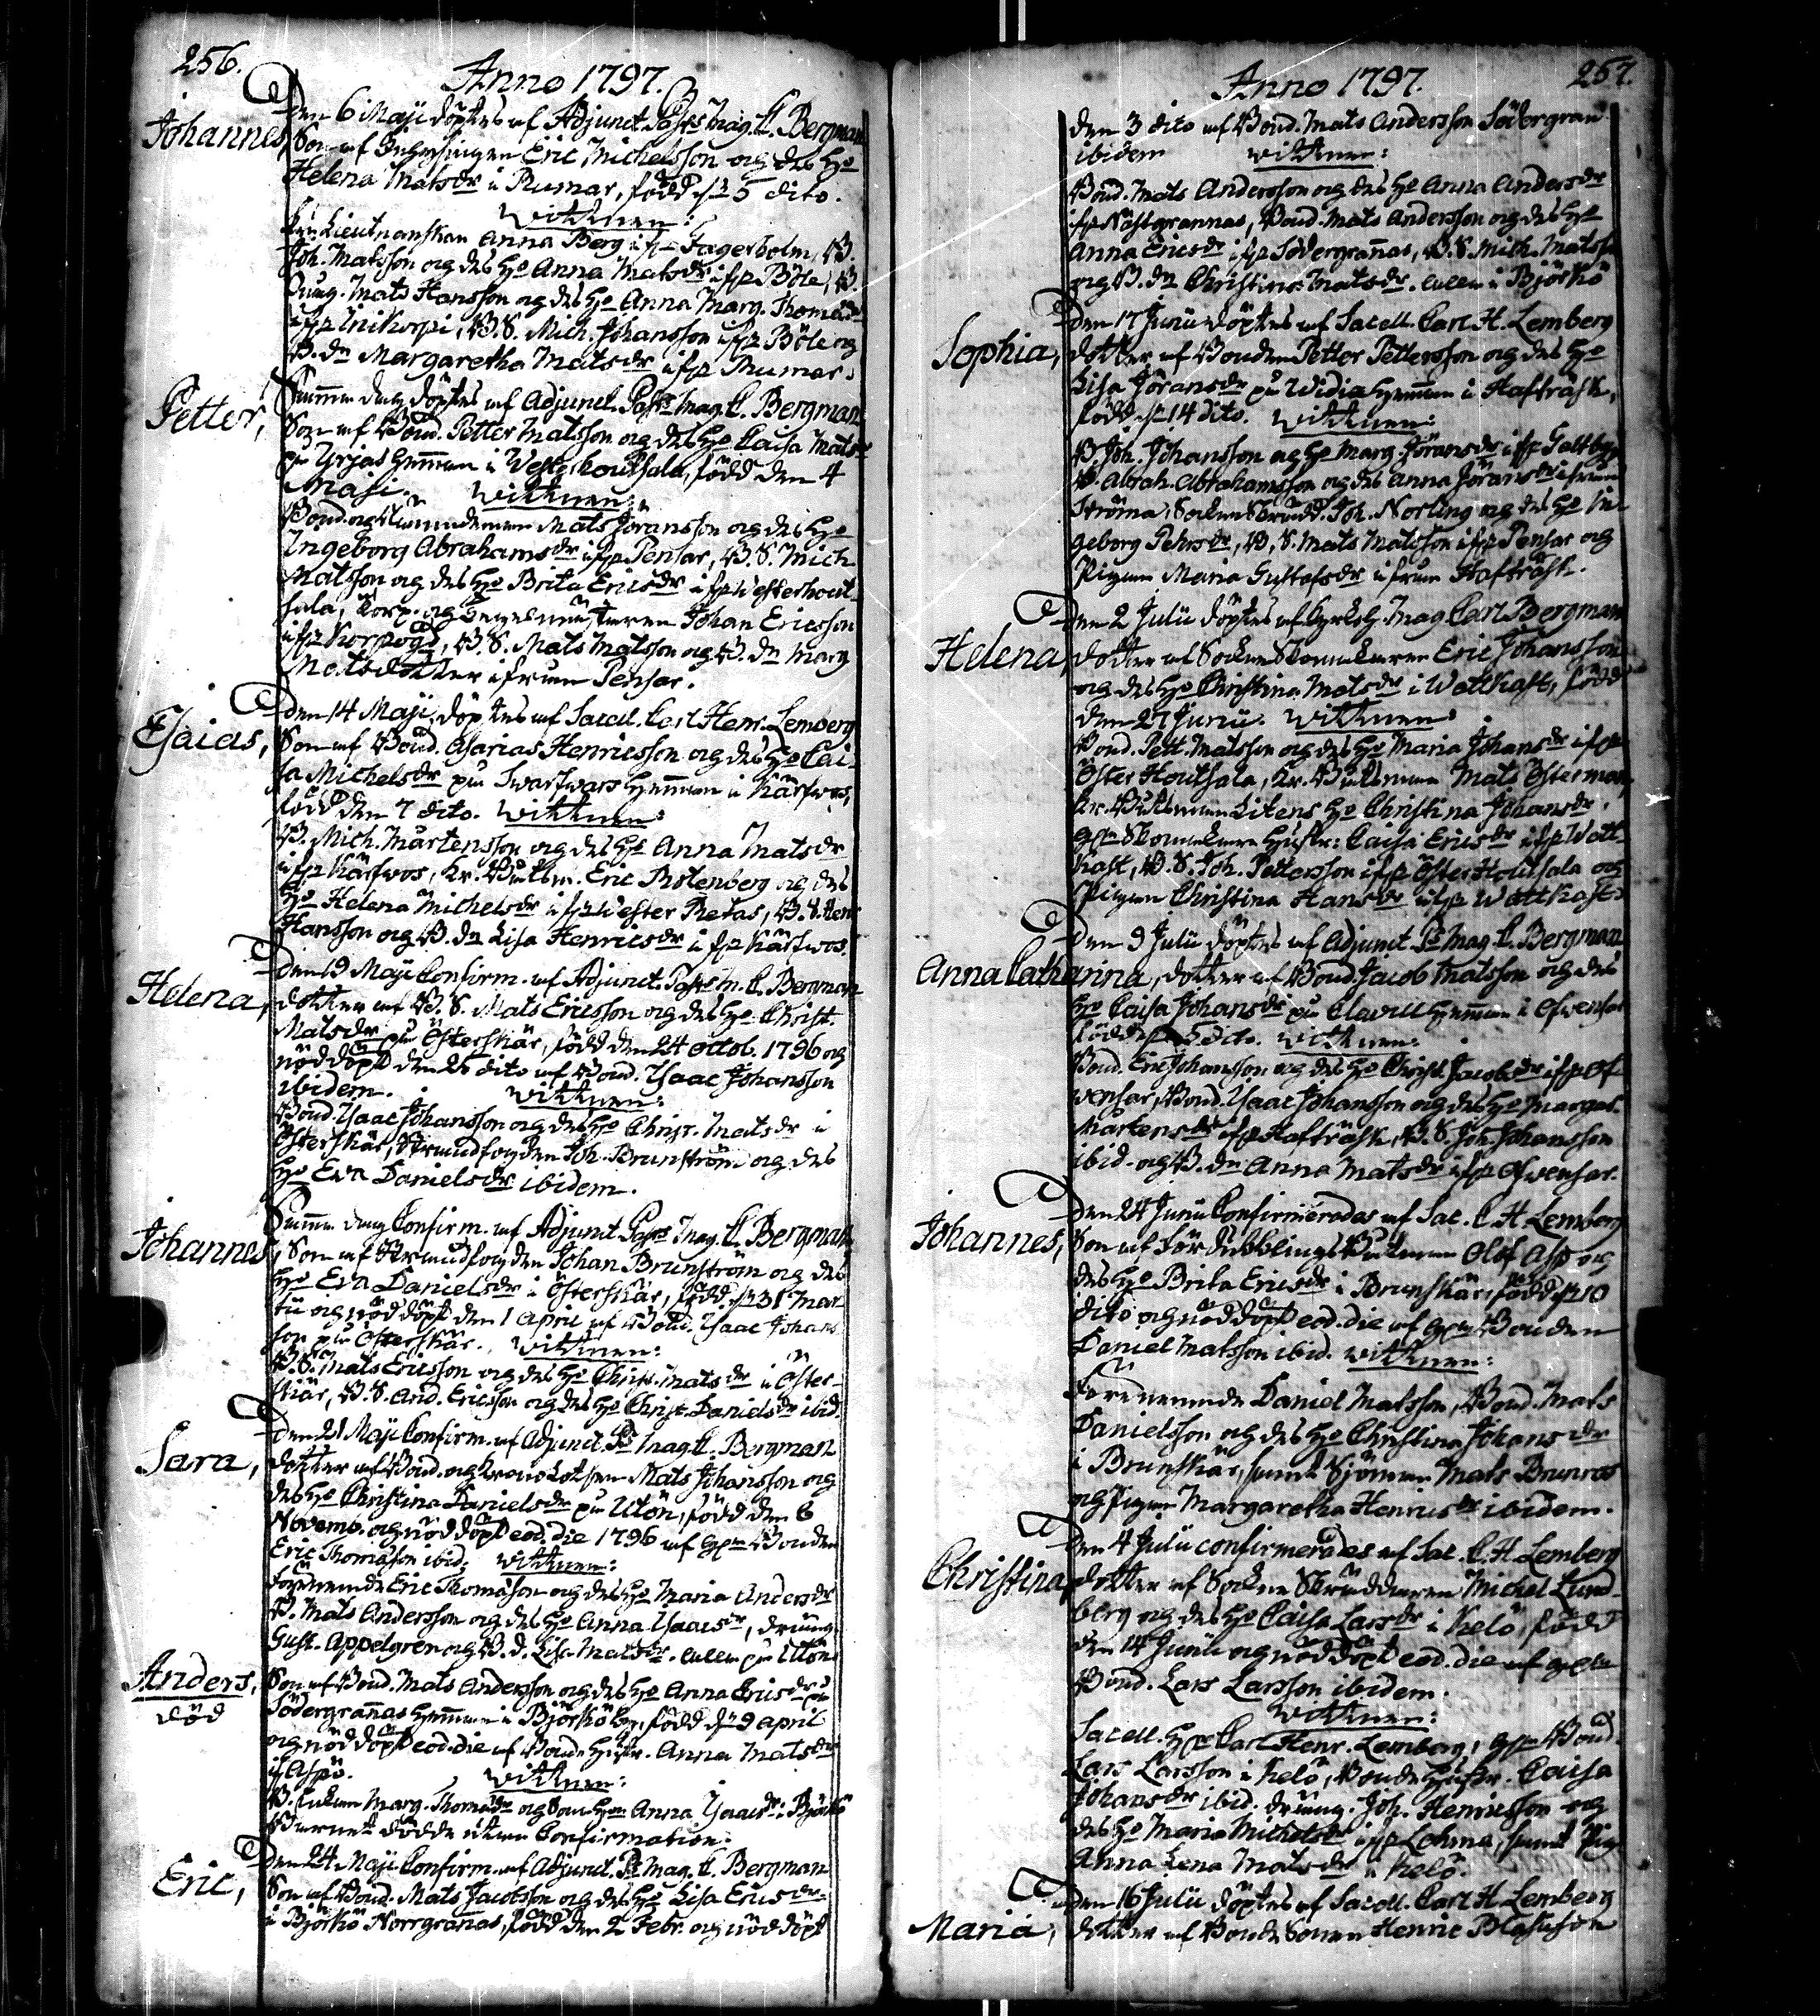 256.
Anno 1797.
Johannes,
Den 6 Maji döptes af Adjunct. Past: Mag. C. Bergman
Son af Inhysingen Eric Michelsson og des Ho
Helena Matsdr i Rumar, född d. 5 dito.
Wittnen:
Lieutnanskan Anna Berg ifr. Fagerholm, B.
Joh. Matsson og des Ho Anna Matsdr ifr. Böle, B.
Mats Hansson og des Ho Anna Marg. Thomasdr
ifr. Inikorpi, B. S. Mich. Johansson ifr. Böle og
B. dr Margaretha Matsdr ifr. Rumar.
Petter,
Samma dag döptes af Adjunct. Past: Mag. C. Bergman
Son af Bond. Petter Matsson og des Ho Caisa Matsdr
på Yrjas Hemman i Wester houtsala, född den 4
Maji. Wittnen:
Bond. og Nämndeman Mats Joransson og des Ho
Ingeborg Abrahamsdr ifr. Pensar, B. S. Mich
Matsson og des Ho Brita Ericsdr ifr. Westerhout
sala, Korp. og Johan Ericsson
ifr. Korpogd, B. S. Mats Matsson og B. dr Marg
Matsdotter ifrån Pensar.
Esaias,
Den 14 Maji, döptes af Sacell. Carl Henr. Lemberg
Son af Bond. Asarias Henricsson og des Ho Cai-
sa Michelsdr på Swartwars Hemman i Kärfwos,
född den 7 dito. Wittnen:
B. Mich. Mårtensson og des Ho Anna Matsdr
ifr. Kärfwos, Kr. Båtsm. Eric Rotenberg og des
Ho Helena Michelsdr ifr. Wester Retas, B. S. Henr
Hansson og B. dr Lisa Henricsdr ifr. Kärfwos.
Helena,
Den 19 Maji Confirm. af Adjunct. Past: M. C. Bergman
dotter af B. S. Mats Ericsson og des Ho Christ.
Matsdr på Österskär, född den 24 octob. 1796 og
nöddöpt den 25 dito af Bond. Ysaac Johansson
ibidem. Wittnen:
Bond. Ysaac Johansson og des Ho Christ. Matsdr i
Österskär, Strandfogden Joh. Brunström og des
Ho Eva Danielsdr ibidem.
Johannes,
Samma dag Confirm. af Adjunct Past: Mag. C. Bergman
Son af Strandfogden Johan Brunström og des
Ho Eva Danielsdr i Österskär, född d. 31 Mar
tii og nöddöpt den 1 April af Bond. Ysaac Johans
son på Österskär. Wittnen:
B. S. Mats Ericsson og des Ho Christ. Matsdr i Öster-
skär, B. S. And. Ericsson og des Ho Christ. Danielsdr ibid.
Sara,
Den 21 Maji Confirm. af Adjunct. P: Mag. C. Bergman
dotter af Bond. og Cronolotsen Mats Johansson og
des Ho Christina Danielsdr på Utön, född den 6
Novemb. og nöddöpt eod. die 1796 af Bonden
Eric Thomasson ibid. Wittnen:
Förnemnde Eric Thomasson og des Ho Maria Andersdr
B. Mats Andersson og des Ho Anna Ysaacsdr, dräng
Gust. Appelgren og B. d. Lisa Matsdr. allla på Utön
Anders,
död
Son af Bond. Mats Andersson og des Ho Anna Ericsdr på
Södergrannas Hemman i Björkö by, född d. 9 april
og nöddöpt eod. die af Bond. Hustr. Anna Matsdr
i Aspö. Wittnen:
B. Enkan Marg. Thomasdr og Anna Ysaacsdr i Björkö
Barnet dödde utan Confirmation.
Eric,
Den 24 Maji Confirm. af Adjunct. P: Mag. C. Bergman
Son af Bond. Mats Jacobsson og des Ho Lisa Ericsdr
i Björkö Norrgranas, född den 2 Febr. og nöddöpt
257.
Anno 1797.
den 3 dito af Bond. Mats Andersson Södergran
ibidem Wittnen:
Bond. Mats Andersson og des Ho Anna Andersdr
ifr Nästgrannas, Bond. Mats Andersson og des Ho
Anna Ericsdr ifr Södergrañas, B. S. Mich. Matss
og B. dr Christina Matsdr. alla i Björkö
Sophia,
Den 17 Junii döptes af Sacell. Carl H. Lemberg
dotter af Bonden Petter Pettersson og des Ho
Lisa Jöransdr på Widia Hemman i Hafträsk,
född d. 14 dito. Wittnen:
B. Joh. Johansson og Ho Marg. Jöransdr ifr Galtby
B. Abrah. Abrahamsson og des Anna Jöransdr ifrån
Ströma, Sockne Skrädd. Joh. Norling og des Ho In-
geborg Pehrsdr, B. S. Mats Matsson ifr Pensar og
Pigan Maria Gustafsdr ifrån Hafträsk.
Helena,
Den 2 Julii döptes af Kyrkoh. Mag Carl Bergman
dotter af Sockne Skomakaren Eric Johansson
og des Ho Christina Matsdr i Wattkast, född
den 27 Junii. Wittnen:
Bond. Pett. Matsson og des Ho Maria Johansdr ifr
Öster Houtsala, Kr. Båtsman Mats Österman,
Kr. Båtsman Litens Ho Christina Johansdr.
Skomakare Hustr: Caisa Ericsdr ifr Watt-
kast, B. S. Joh. Pettersson ifr Öster Houtsala og
Pigan Christina Hansdr ifr Wattkast
Anna Catharina,
Den 9 Julii döptes af Adjunct. P: Mag. C. Bergman
dotter af Bond. Jacob Matsson og des
Ho Caisa Johansdr på Clavus Hemman i Ofwensar
född d. 5 dito. Wittnen:
Bond. Eric Johansson og des Ho Christ. Jacobsdr ifr Of
wensar, Bond. Ysaac Johansson og des Ho Margar.
Mårtensdr ifr Hafträsk, B. S. Joh. Johansson
ibid. og B. dr Anna Matsdr ifr Ofwensar.
Johannes,
Den 24 Junii Confirmerades af Sac. C. H. Lemberg
Son af Fördubblings Båtsman Olof Asp og
des Ho Brita Ericsdr i Brunskär, född d. 10
dito og nöddöpt eod. die af Bonden
Daniel Matsson ibid. Wittnen:
Förenemnde Daniel Matsson, Bond. Mats
Danielsson og des Ho Christina Johansdr
i Brunskär, samt Sjöman Mats Brunros
og Pigan Margaretha Henricsdr ibidem.
Christina,
Den 4 Julii confirmerades af Sac. C. H. Lemberg
dotter af Sockne Skräddaren Michel Lund-
berg og des Ho Caisa Larsdr i Kelö, född
den 14 Junii og nöddöpt eod. die af
Bond. Lars Larsson ibidem.
Wittnen:
Sacell. Carl Henr. Lemberg, Bond.
Lars Larsson i Kelö, Bonde Hustr. Caisa
Johansdr ibid. dräng. Joh. Henricsson og
des Ho Maria Michelsdr ifr Lohma, samt Pig.
Anna Lena Matsdr i Kelö.
Maria,
Den 16 Julii döptes af Sacell. Carl H. Lemberg
dotter af Bonde Sonen Henric Blasiison